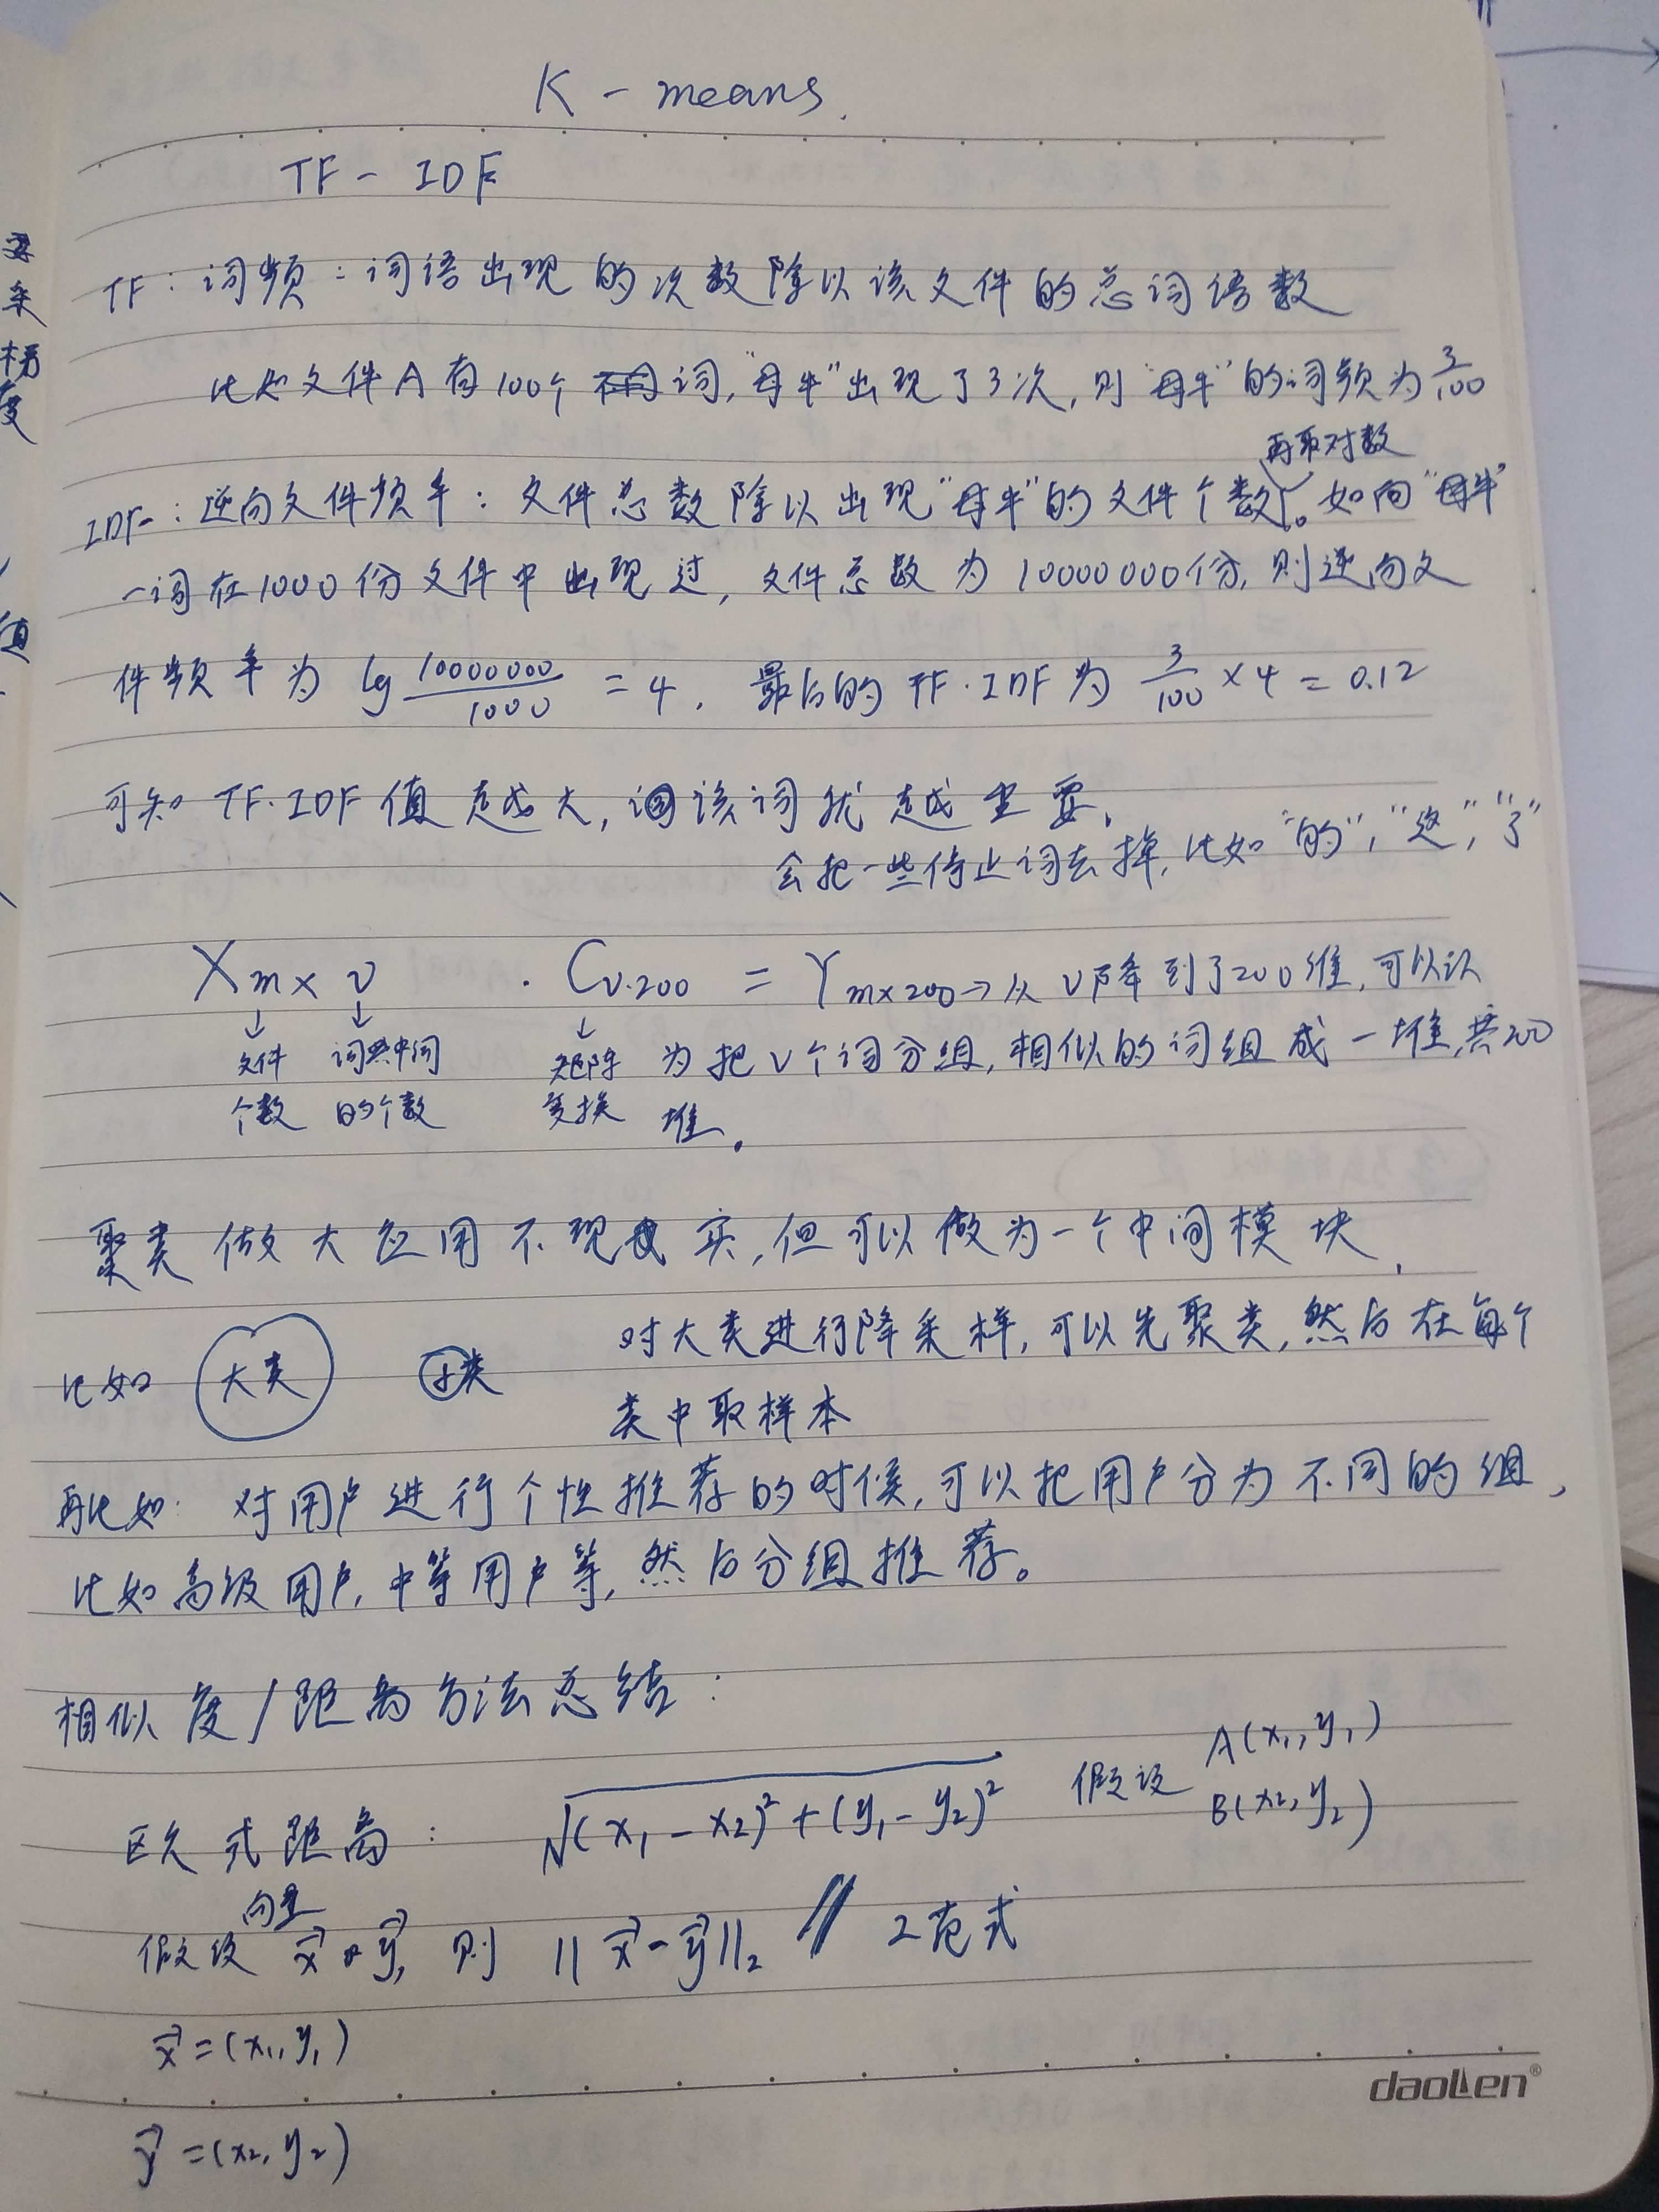 K - means.
TF - IDF
TF：词频：词语出现的次数除以该文件的总词语数
比如文件A有100个词,"母牛"出现了3次,则"母牛"的词频为3/100
再取对数
IDF：逆向文件频率：文件总数除以出现"母牛"的文件个数。如向"母牛"
一词在1000份文件中出现过,文件总数为10000000份,则逆向文
件频率为 lg 10000000/1000 = 4. 最后的 TF·IDF 为 3/100 × 4 = 0.12
可知 TF·IDF 值越大,该词就越重要,
会把一些停止词去掉,比如"的","这","了"
X m×v · C v·200 = Y m×200 → 从 v 降到了200维,可以认
↓ ↓ ↓
文件 词典中词 矩阵 为把v个词分组,相似的词组成一堆,共200
个数 的个数 变换 堆。
聚类做大应用不现实,但可以做为一个中间模块,
对大类进行降采样,可以先聚类,然后在每个
比如 大类 小类
类中取样本
再比如：对用户进行个性推荐的时候,可以把用户分为不同的组,
比如高级用户,中等用户等,然后分组推荐。
相似度/距离方法总结：
A(x₁,y₁)
欧式距离： √(x₁-x₂)²+(y₁-y₂)² 假设
B(x₂,y₂)
向量
假设 x⃗ y⃗, 则 ||x⃗-y⃗||₂ // 2范式
x⃗=(x₁,y₁)
daolen®
y⃗=(x₂,y₂)